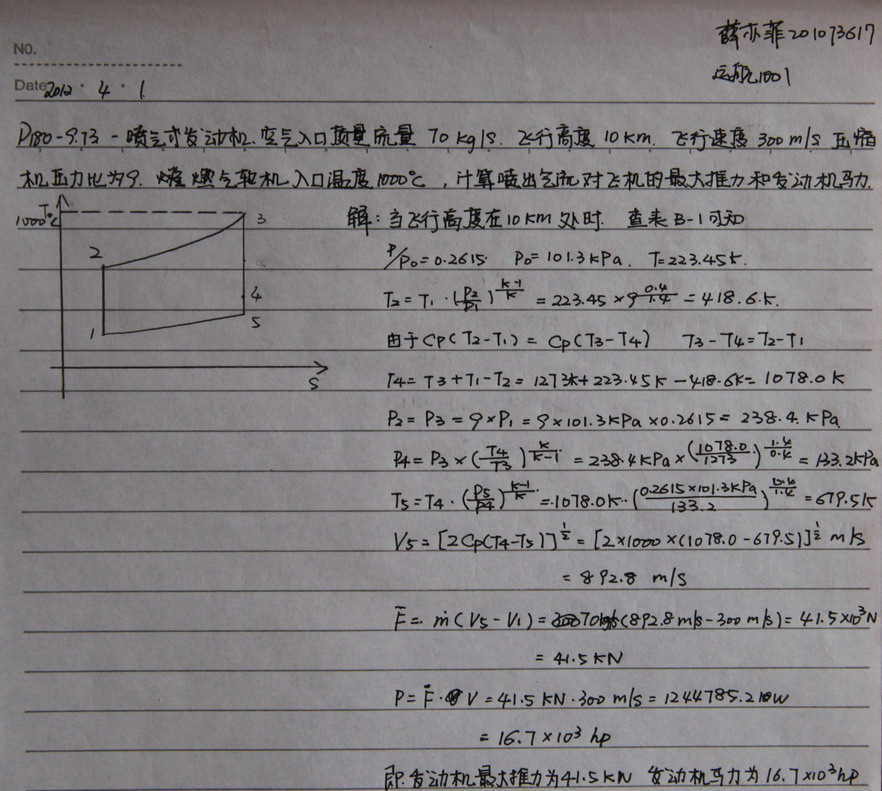 薛亦菲 201073617
NO.
运航1001
Date 2012 · 4 · 1
P180-9.73 一喷气式发动机.空气入口质量流量 70 kg/s. 飞行高度 10 km. 飞行速度 300 m/s 压缩
机压力比为9. 燃气轮机入口温度1000℃,计算喷出气流对飞机的最大推力和发动机马力.
T
1000℃
3
2
4
5
1
S
解:当飞行高度在10 km 处时. 查表 B-1可知
P/P0=0.2615. P0=101.3kPa. T=223.45K.
T2=T1·(P2/P1)^(k-1/k) = 223.45×9^(0.4/1.4) = 418.6.K.
由于 Cp(T2-T1) = Cp(T3-T4) T3-T4=T2-T1
T4= T3+T1-T2= 1273K+223.45K-418.6K= 1078.0K
P2= P3= 9×P1= 9×101.3kPa×0.2615= 238.4. kPa
P4= P3×(T4/T3)^(k/k-1) = 238.4kPa×(1078.0/1273)^(1.4/0.4) = 133.2kPa
T5=T4·(P5/P4)^(k-1/k) = 1078.0K·(0.2615×101.3kPa/133.2)^(0.4/1.4) = 679.5K
V5=[2Cp(T4-T5)]^(1/2) = [2×1000×(1078.0-679.5)]^(1/2) m/s
= 892.8 m/s
F= ṁ(V5-V1) = 70kg/s(892.8m/s-300m/s)= 41.5×10³N
= 41.5KN
P= F·V= 41.5 KN·300 m/s= 1244785.210w
= 16.7×10³ hp
即:发动机最大推力为41.5KN 发动机马力为16.7×10³hp